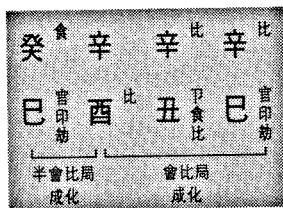 癸食 辛比 辛比 辛
巳官印劫 酉比 丑卩食比 巳官印劫
半會比局 會比局
成化 成化